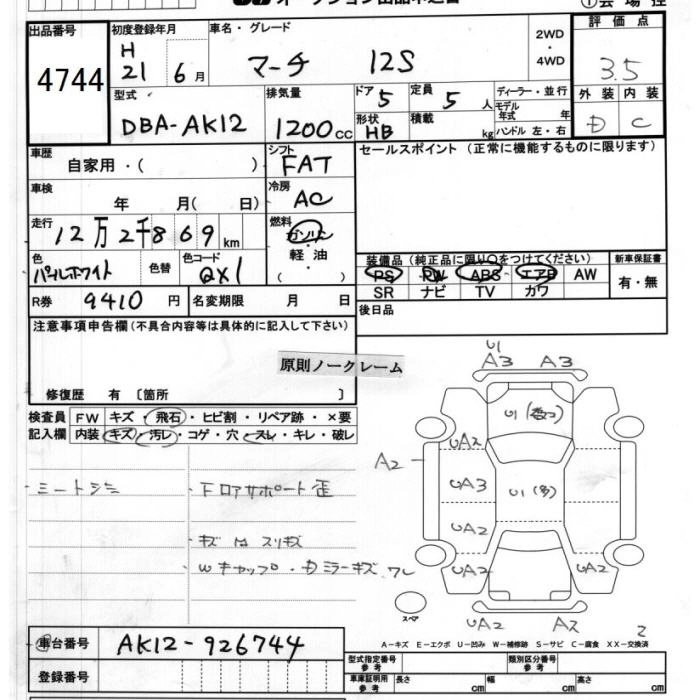 オークション出品申込書
出品番号 4744
初度登録年月 H 21 6月
車名・グレード マーチ 12S
2WD・4WD
評価点 3.5
外装 内装
D C
型式 DBA-AK12
排気量 1200cc
ドア 5 定員 5人
形状 HB 積載 kg
ディーラー・並行
モデル年式 年
ハンドル 左・右
車歴 自家用・( )
シフト FAT
セールスポイント (正常に機能するものに限ります)
車検 年 月( 日)
冷房 AC
走行 12万2千869km
燃料 ガソリン・軽油・( )
色 パールホワイト 色替
色コード QX1
装備品(純正品に限り○をつけてください)
PS PW ABS エアB AW
SR ナビ TV カワ
新車保証書 有・無
R券 9410円
名変期限 月 日
後日品
注意事項申告欄(不具合内容等は具体的に記入して下さい)
原則ノークレーム
修復歴 有 〔箇所 〕
検査員記入欄
FW キズ・飛石・ヒビ割・リペア跡・×要
内装 キズ・汚レ・コゲ・穴・スレ・キレ・破レ
U1
A3 A3
U1
UA2
A2
UA3
U1(多)
UA2
UA2 UA2
UA2 A2
スペア
2
Fロアサポート歪
キズ 凹 スリキズ
Wキャップ・Dミラーキズ ワレ
A-キズ E-エクボ U-凹み W-補修跡 S-サビ C-腐食 XX-交換済
車台番号 AK12-926744
登録番号
型式指定番号 参考
類別区分番号 参考
車庫証明用参考 長さ cm 幅 cm 高さ cm